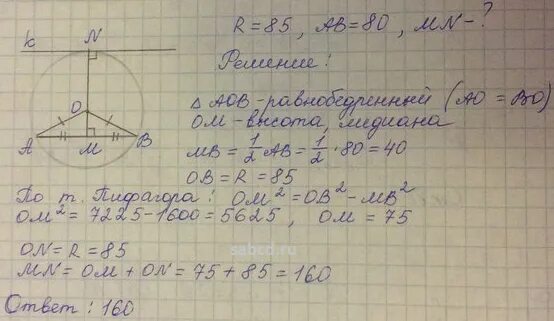 R = 85 , AB = 80 , MN - ?
Решение :
k
N
O
A
M
B
△ AOB - равнобедренный (AO = BO)
OM - высота, медиана
MB = 1/2 AB = 1/2 · 80 = 40
OB = R = 85
По т. Пифагора : OM² = OB² - MB²
OM² = 7225 - 1600 = 5625 , OM = 75
sabcd.ru
ON = R = 85
MN = OM + ON = 75 + 85 = 160
Ответ : 160